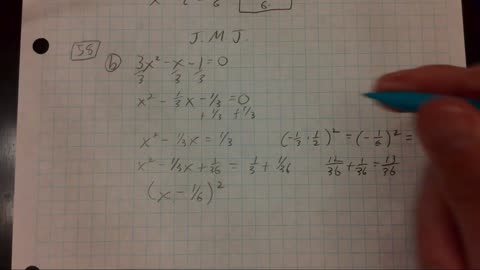 6.
J.M.J.
58
b 3x² - x - 1 = 0
3 3 3
x² - 1/3x - 1/3 = 0
+ 1/3 + 1/3
x² - 1/3x = 1/3 (-1/3 · 1/2)² = (-1/6)² =
x² - 1/3x + 1/36 = 1/3 + 1/36 12/36 + 1/36 = 13/36
(x - 1/6)²